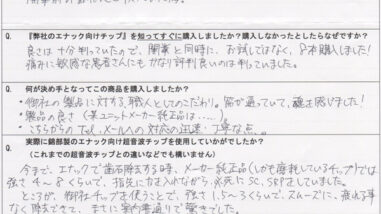 Q. 『弊社のエナック向けチップ』を知ってすぐに購入しましたか？購入しなかったとしたらなぜですか？
良さは十分判っていたので、開業と同時に、お試しではなく、8本購入しました！
痛みに敏感な患者さんにもかなり評判良いのは判っていました。
Q. 何が決め手となってこの商品を購入しましたか？
・御社の製品に対する、職人としてのこだわり。筋が通っていて、魂を感じました！
・製品の良さ（某ユニットメーカー純正品は……）
・こちらからのTel、メールへの対応の迅速・丁寧な点
Q. 実際に錦部製のエナック向け超音波チップを使用していかがでしたか？
（これまでの超音波チップとの違いなどでも構いません）
今まで、エナックで歯石除去する時、メーカー純正品（しかも磨耗しているチップ）では
強さ4～8くらいで、指先に力を入れながら、必死にSC、SRPをしていました。
ところが、御社チップを使うことで、強さ1.5～3くらいで、スムーズに、疲れる事
なく除去できて、まさに案内書通りで驚きでした。